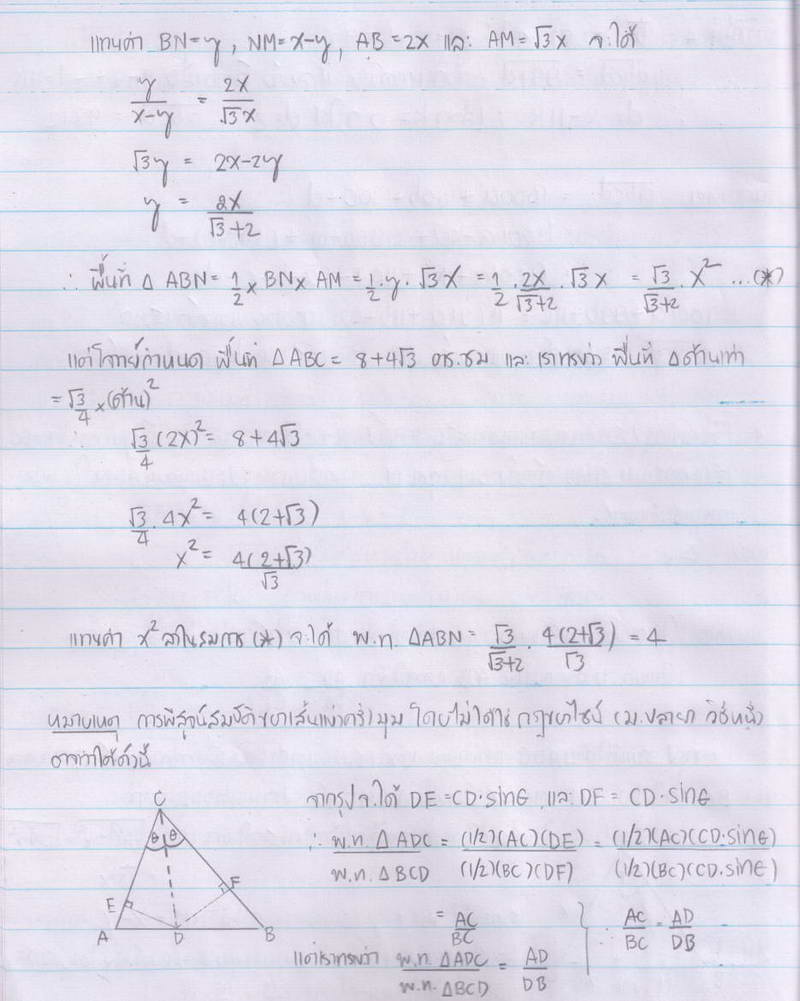 แทนค่า BN=y , NM=x-y , AB=2x และ AM=√3x จะได้
y/(x-y) = 2x/(√3x)
√3y = 2x-2y
y = 2x/(√3+2)
∴ พื้นที่ Δ ABN = 1/2 × BN × AM = 1/2 · y · √3x = 1/2 · 2x/(√3+2) · √3x = √3/(√3+2) · x² ...(*)
แต่โจทย์กำหนด พื้นที่ ΔABC = 8+4√3 ตร.ซม และ เราทราบว่า พื้นที่ Δด้านเท่า
= √3/4 × (ด้าน)²
∴ √3/4 (2x)² = 8+4√3
√3/4 · 4x² = 4(2+√3)
x² = 4(2+√3)/√3
แทนค่า x² ลงในสมการ (*) จะได้ พ.ท. ΔABN = √3/(√3+2) · 4(2+√3)/√3 = 4
หมายเหตุ การพิสูจน์สมบัติของเส้นแบ่งครึ่งมุม โดยไม่ได้ใช้ กฎของไซน์ (ม.ปลาย) วิธีหนึ่ง
อาจทำได้ดังนี้
จากรูป จะได้ DE = CD·sinθ และ DF = CD·sinθ
∴ พ.ท. ΔADC / พ.ท. ΔBCD = (1/2)(AC)(DE) / (1/2)(BC)(DF) = (1/2)(AC)(CD·sinθ) / (1/2)(BC)(CD·sinθ)
= AC/BC
แต่เราทราบว่า พ.ท. ΔADC / พ.ท. ΔBCD = AD/DB
} ∴ AC/BC = AD/DB
C
θ θ
F
E
A D B